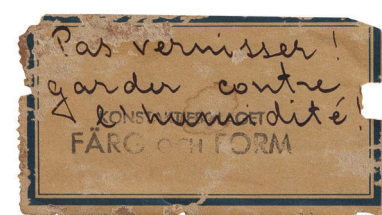 Pas vernisser !
garder contre
l'humidité !
KONSTFÖRLAGET
FÄRG OCH FORM